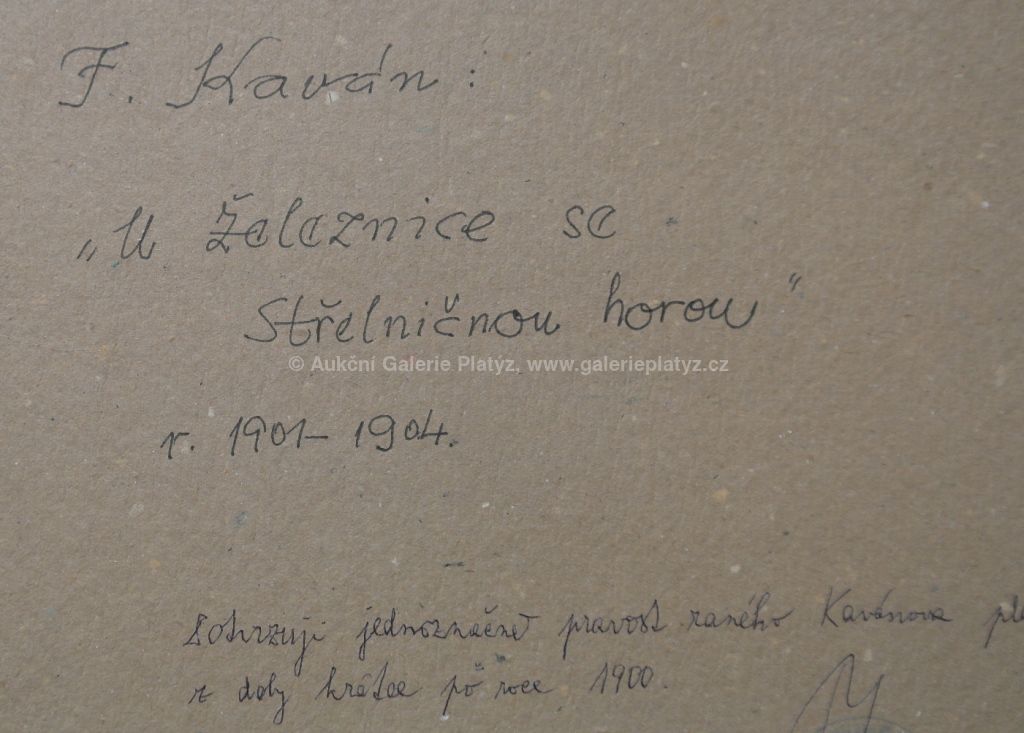 F. Kaván:
„U Železnice se
Střelničnou horou"
© Aukční Galerie Platýz, www.galerieplatyz.cz
r. 1901–1904.
Potvrzuji jednoznačně pravost raného Kavánova
z doby krátce po roce 1900.